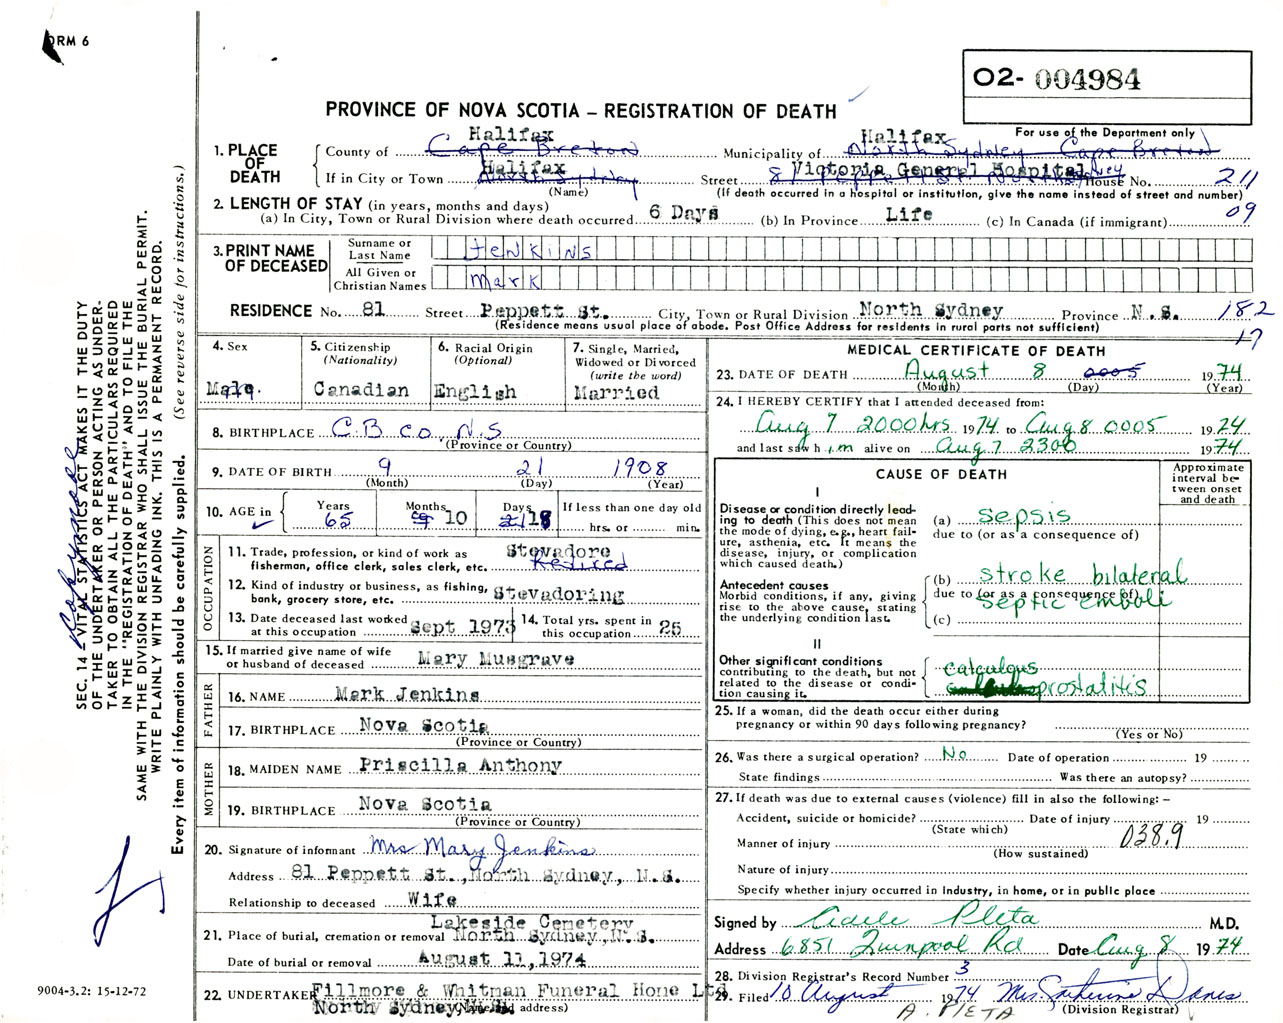 FORM 6
O2- 004984
PROVINCE OF NOVA SCOTIA – REGISTRATION OF DEATH
For use of the Department only
1. PLACE OF DEATH
County of Cape Breton Halifax Municipality of North Sydney Cape Breton Halifax
If in City or Town North Sydney Halifax (Name) Street Victoria General Hospital House No. 211
(If death occurred in a hospital or institution, give the name instead of street and number)
2. LENGTH OF STAY (in years, months and days)
(a) In City, Town or Rural Division where death occurred 6 Days (b) In Province Life (c) In Canada (if immigrant) 09
3. PRINT NAME OF DECEASED
Surname or Last Name Jenkins
All Given or Christian Names Mark
RESIDENCE No. 81 Street Peppett St. City, Town or Rural Division North Sydney Province N.S. 182
(Residence means usual place of abode. Post Office Address for residents in rural parts not sufficient) 17
4. Sex Male
5. Citizenship (Nationality) Canadian
6. Racial Origin (Optional) English
7. Single, Married, Widowed or Divorced (write the word) Married
8. BIRTHPLACE C.B co. N.S (Province or Country)
9. DATE OF BIRTH 9 21 1908
(Month) (Day) (Year)
10. AGE in Years 65 Months 10 Days 18 If less than one day old hrs. or min.
OCCUPATION
11. Trade, profession, or kind of work as fisherman, office clerk, sales clerk, etc. Stevadore Retired
12. Kind of industry or business, as fishing, bank, grocery store, etc. Stevadoring
13. Date deceased last worked at this occupation Sept 1973
14. Total yrs. spent in this occupation 25
15. If married give name of wife or husband of deceased Mary Musgrave
FATHER
16. NAME Mark Jenkins
17. BIRTHPLACE Nova Scotia
(Province or Country)
MOTHER
18. MAIDEN NAME Priscilla Anthony
19. BIRTHPLACE Nova Scotia
(Province or Country)
20. Signature of informant Mrs Mary Jenkins
Address 81 Peppett St., North Sydney, N.S.
Relationship to deceased Wife
21. Place of burial, cremation or removal Lakeside Cemetery North Sydney, N.S.
Date of burial or removal August 11, 1974
22. UNDERTAKER Fillmore & Whitman Funeral Home Ltd
North Sydney, N.S. (Name and address)
MEDICAL CERTIFICATE OF DEATH
23. DATE OF DEATH August 8 0005 1974
(Month) (Day) (Year)
24. I HEREBY CERTIFY that I attended deceased from:
Aug 7 2000hrs 1974 to Aug 8 0005 1974
and last saw him alive on Aug 7 2300 1974
CAUSE OF DEATH
Approximate interval between onset and death
I
Disease or condition directly leading to death (This does not mean the mode of dying, e.g., heart failure, asthenia, etc. It means the disease, injury, or complication which caused death.)
(a) sepsis
due to (or as a consequence of)
Antecedent causes
Morbid conditions, if any, giving rise to the above cause, stating the underlying condition last.
(b) stroke bilateral
due to (or as a consequence of)
septic emboli
(c)
II
Other significant conditions contributing to the death, but not related to the disease or condition causing it.
calculous
prostatitis
25. If a woman, did the death occur either during pregnancy or within 90 days following pregnancy?
(Yes or No)
26. Was there a surgical operation? No Date of operation 19
State findings Was there an autopsy?
27. If death was due to external causes (violence) fill in also the following: –
Accident, suicide or homicide? Date of injury 19
(State which)
Manner of injury 038.9
(How sustained)
Nature of injury
Specify whether injury occurred in Industry, in home, or in public place
Signed by Pleta M.D.
Address 6851 Quinpool Rd Date Aug 8 1974
28. Division Registrar's Record Number 3
29. Filed 10 August 1974 Mrs.
A. PLETA (Division Registrar)
SEC. 14 – VITAL STATISTICS ACT MAKES IT THE DUTY
OF THE UNDERTAKER OR PERSON ACTING AS UNDER-
TAKER TO OBTAIN ALL THE PARTICULARS REQUIRED
IN THE "REGISTRATION OF DEATH" AND TO FILE THE
SAME WITH THE DIVISION REGISTRAR WHO SHALL ISSUE THE BURIAL PERMIT.
WRITE PLAINLY WITH UNFADING INK. THIS IS A PERMANENT RECORD.
Every item of information should be carefully supplied. (See reverse side for instructions.)
9004-3.2: 15-12-72